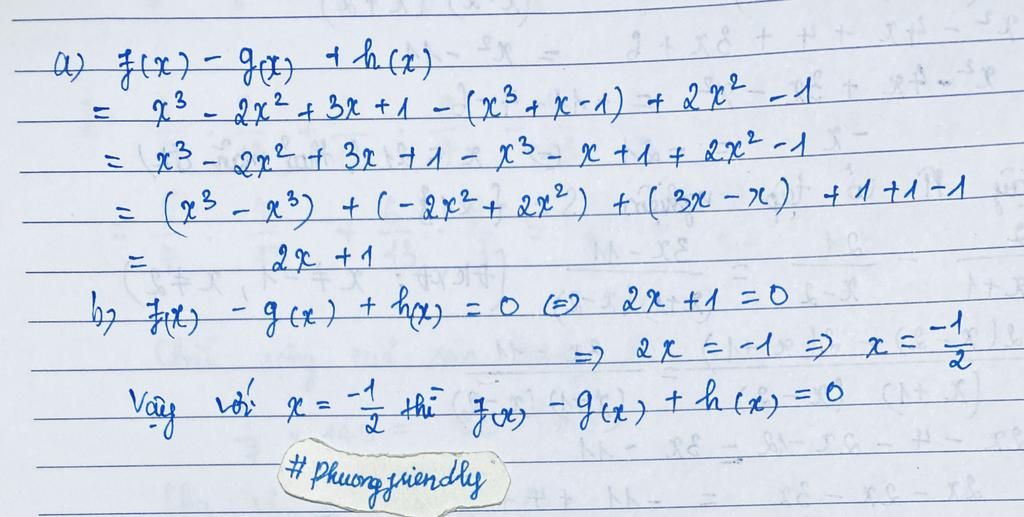 a) f(x) - g(x) + h(x)
= x³ - 2x² + 3x + 1 - (x³ + x - 1) + 2x² - 1
= x³ - 2x² + 3x + 1 - x³ - x + 1 + 2x² - 1
= (x³ - x³) + (-2x² + 2x²) + (3x - x) + 1 + 1 - 1
= 2x + 1
b, f(x) - g(x) + h(x) = 0 (=) 2x + 1 = 0
=> 2x = -1 => x = -1/2
Vậy với x = -1/2 thì f(x) - g(x) + h(x) = 0
#phuongfriendly